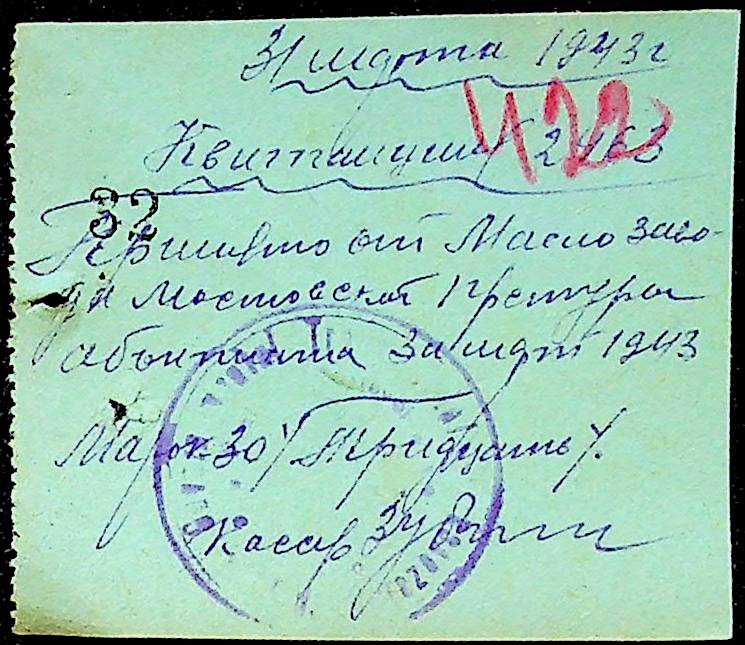 31 марта 1943 г
422
Квитанция 2463
32
Принято от Масло заво-
да Мостовской Претуры
абонтата За март 1943
Марок 30 /тридцать/.
Касир